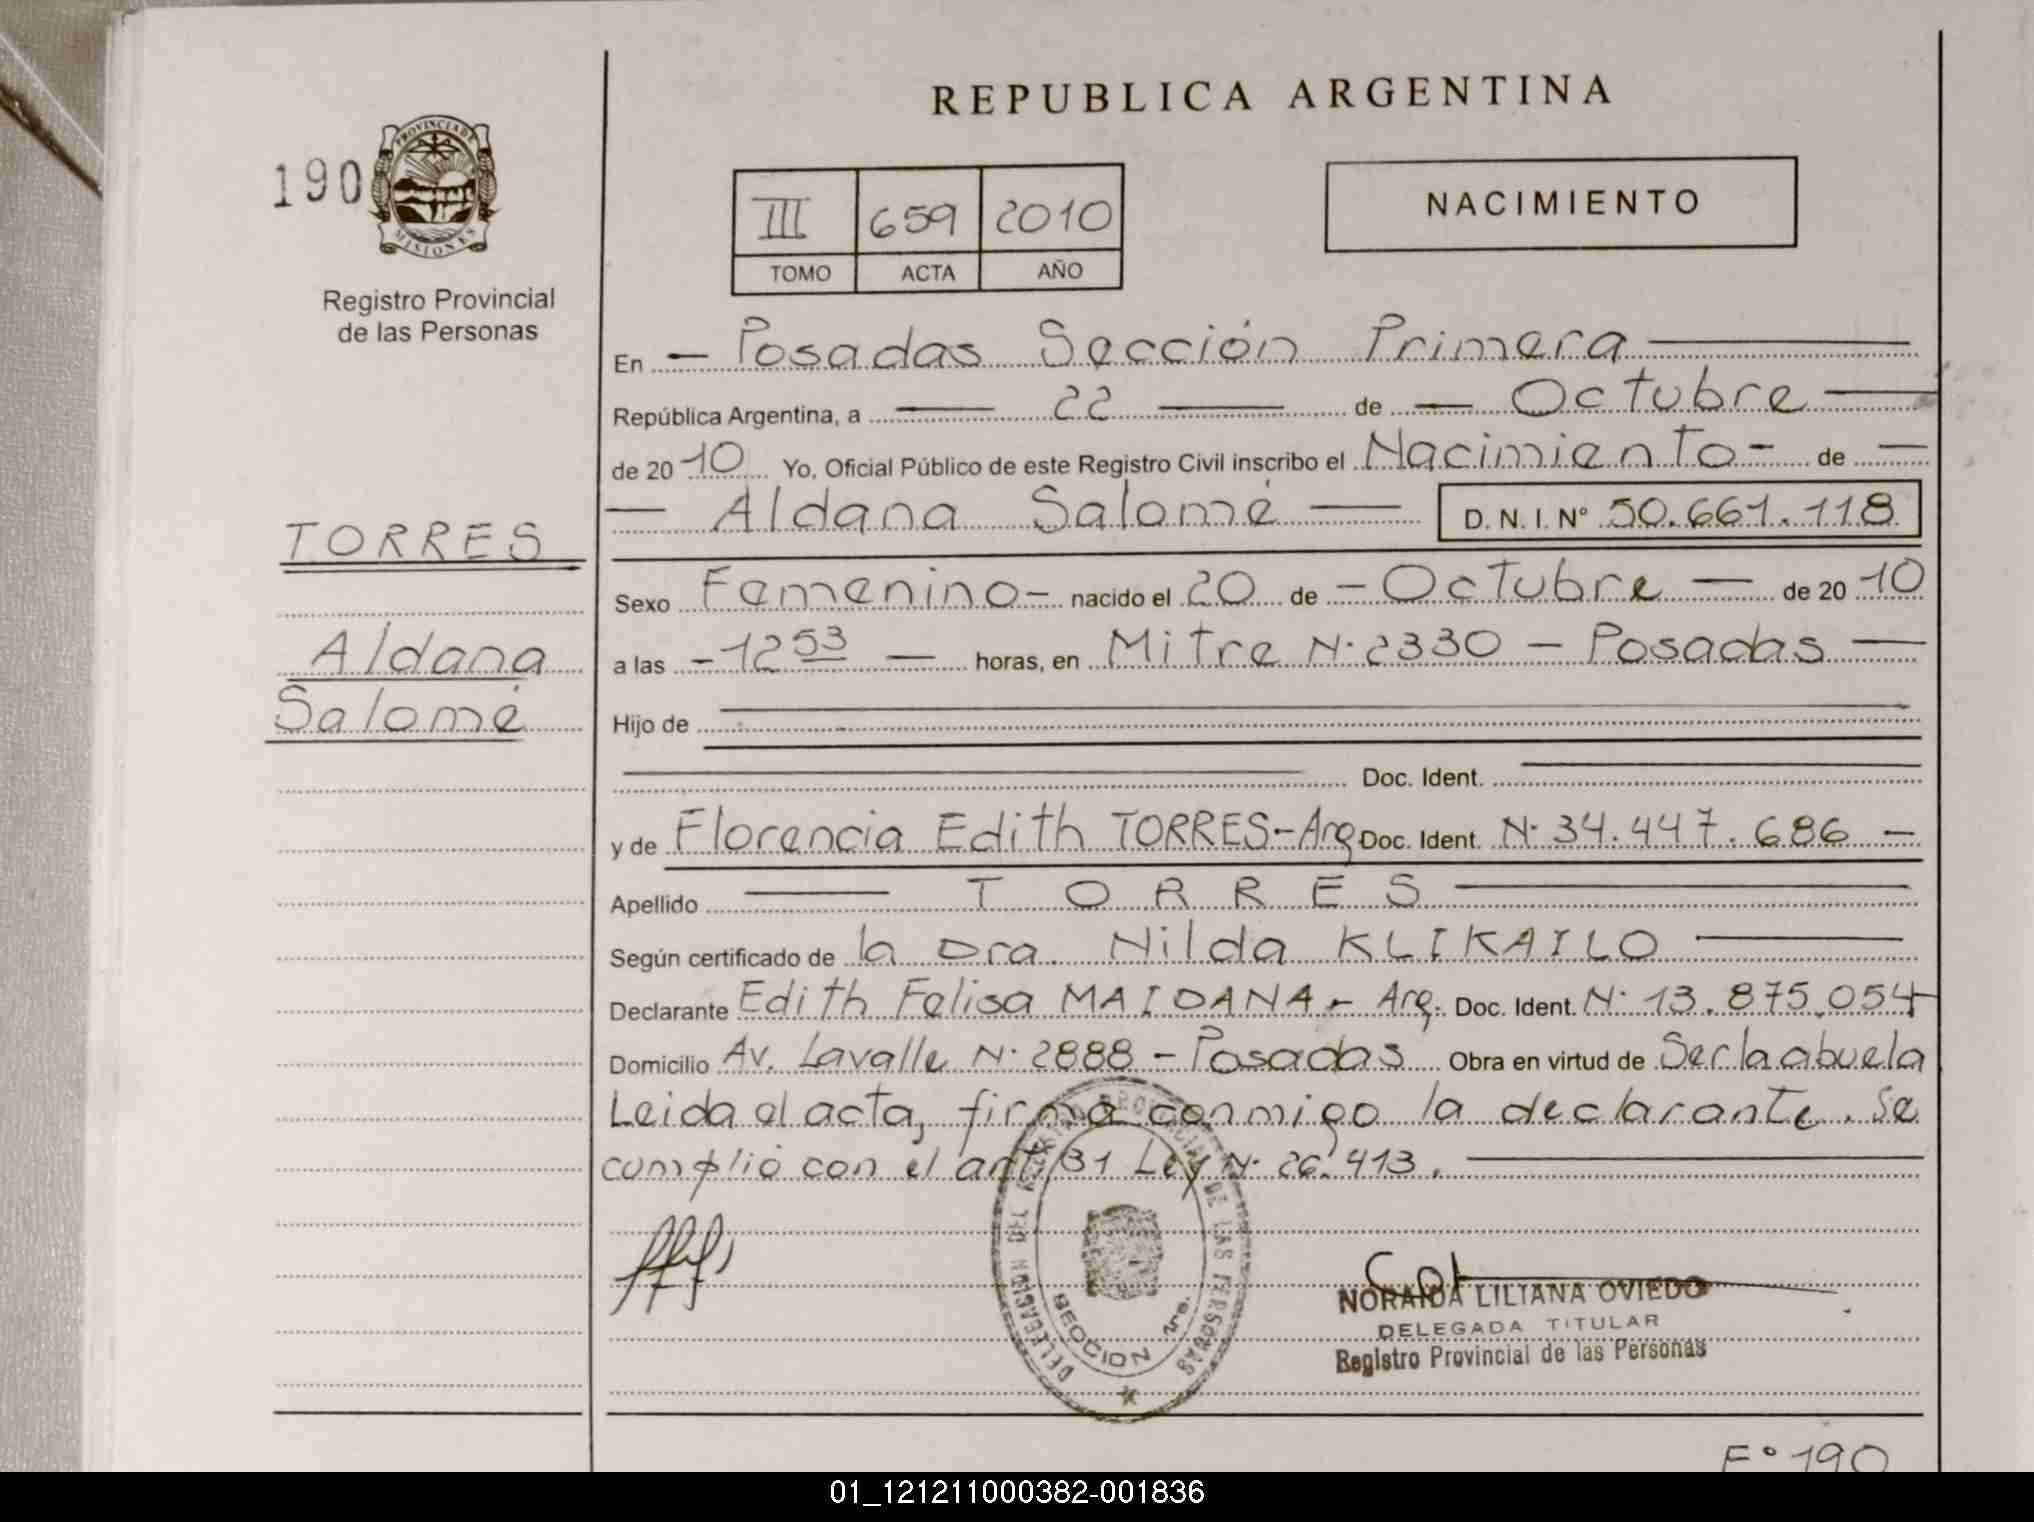 REPUBLICA ARGENTINA
190
PROVINCIA DE
MISIONES
Registro Provincial
de las Personas
III 659 2010
TOMO ACTA AÑO
NACIMIENTO
En — Posadas Sección Primera —
República Argentina, a — 22 — de — Octubre —
de 20 10 Yo, Oficial Público de este Registro Civil inscribo el Nacimiento - de —
— Aldana Salomé — D. N. I. Nº 50.661.118
TORRES
Aldana
Salomé
Sexo Femenino - nacido el 20 de - Octubre — de 20 10
a las - 12 53 — horas, en Mitre N· 2330 - Posadas —
Hijo de
Doc. Ident.
y de Florencia Edith TORRES - Arg Doc. Ident. N· 34.447.686 -
Apellido — TORRES —
Según certificado de la Dra. Nilda KLIKAILO —
Declarante Edith Felisa MAIDANA - Arg. Doc. Ident. N· 13.875.054
Domicilio Av. Lavalle N· 2888 - Posadas Obra en virtud de Ser la abuela
Leida el acta, firma conmigo la declarante. Se
cumplió con el art. 31 Ley N· 26.413. —
DELEGACION DEL REGISTRO PROVINCIAL DE LAS PERSONAS
SECCION 1ra.
NORAIDA LILIANA OVIEDO
DELEGADA TITULAR
Registro Provincial de las Personas
Fº 190
01_121211000382-001836